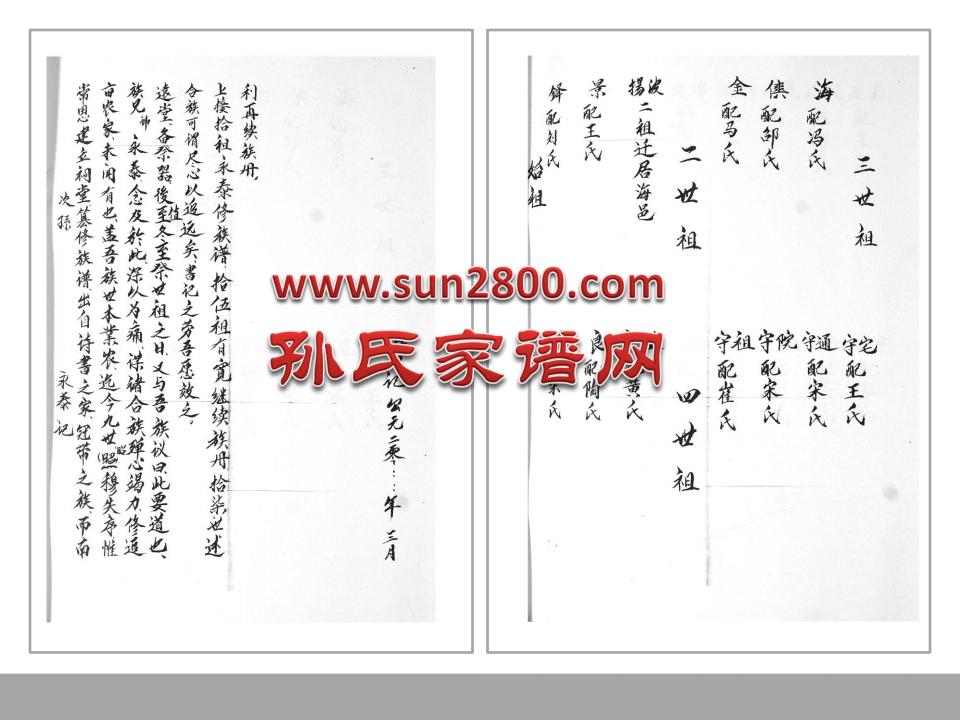 常思建立祠堂纂修族谱出自诗书之家、冠带之族、而南
亩农家未闻有也、盖吾族世本業农、迄今九世(照)昭穆失序惟
族兄 永泰念及於此、深以为痛、谋诸合族殚心竭力修追
遠堂、备祭器、後至值冬至祭世祖之日、又与吾族议曰、此要道也、
合族可谓尽心以追远矣、書记之劳吾愿效之。
次孫 永泰 记
上接拾祖永泰修族谱拾伍祖有寛继续族册拾柒世述
利再续族册。
公元二零……年三月
始祖
鐸配刘氏
景配王氏
波
揚 二祖迁居海邑
二世祖
金配马氏
侠配邵氏
海配冯氏
三世祖
良配陶氏
黄氏
四世祖
守祖配崔氏
守院配宋氏
守通配宋氏
守宅配王氏
www.sun2800.com
孙氏家谱网